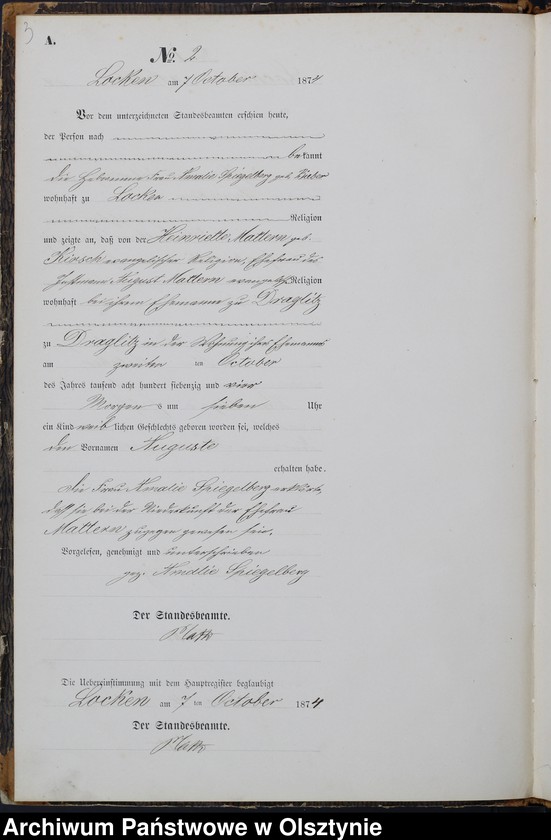 3
A.
No. 2
Locken am 7 October 1874
Vor dem unterzeichneten Standesbeamten erschien heute,
der Person nach
bekannt
die Hebamme Frau Amalie Spiegelberg geb.
wohnhaft zu Locken
Religion
und zeigte an, daß von der Henriette Mattern geb.
Kirsch evangelischer Religion, Ehefrau des
Instmann August Mattern evangelischer Religion
wohnhaft bei ihrem Ehemanne zu Draglitz
zu Draglitz in der Wohnung ihres Ehemannes
am zweiten ten October
des Jahres tausend acht hundert siebenzig und vier
Morgen s um sieben Uhr
ein Kind weib lichen Geschlechts geboren worden sei, welches
den Vornamen Auguste
erhalten habe.
Die Frau Amalie Spiegelberg erklärte,
daß sie bei der Niederkunft der Ehefrau
Mattern zugegen gewesen sei.
Vorgelesen, genehmigt und unterschrieben
gez. Amalie Spiegelberg
Der Standesbeamte.
Die Uebereinstimmung mit dem Hauptregister beglaubigt
Locken am 7 ten October 1874
Der Standesbeamte.
Archiwum Państwowe w Olsztynie